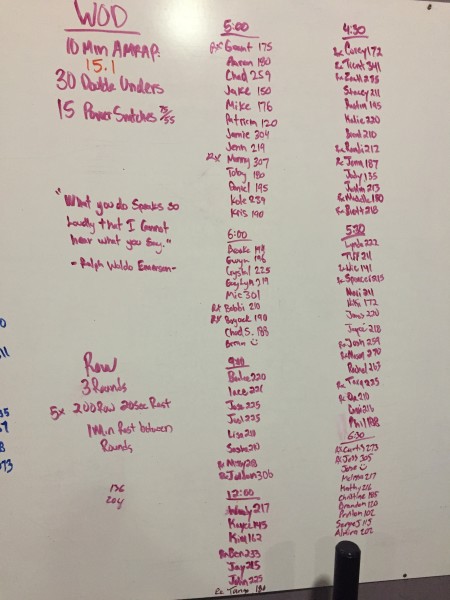 WOD
10 Min AMRAP
15.1
30 Double Unders
15 Power Snatches 75/55
"What you do Speaks so
Loudly that I Cannot
hear what you Say."
- Ralph Waldo Emerson-
Row
3 Rounds
5x 200 Row 20sec Rest
1 Min Rest between
Rounds
136
204
5:00
Rx Grant 175
Aaron 180
Chad 259
Jake 150
Mike 176
Patricia 120
Jamie 304
Jenn 219
Rx Manny 307
Toby 180
Daniel 195
Kole 239
Kris 190
6:00
Brooke 194
Gwyn 196
Crystal 225
Gaylyn 219
Mic 301
Rx Bobbi 210
Rx 190
Chad S. 188
9:00
220
Jose 225
Joel 225
Lisa 210
Sasha 210
Rx Missy
Rx 306
12:00
Wendy 217
Kayce 145
Kim 162
Rx Ben 233
Jay 215
John 225
Rx 180
4:30
Rx Corey 172
Rx Trent 341
Rx Zach 285
Stacey 211
Dustin 195
Halie 220
Brent 210
Rx Randi 212
Rx Jenn 187
Judy 135
Justin 213
Rx 180
Rx Brett 218
5:30
Lynda 222
Tiff 211
141
Rx Spencer 215
211
Nikki 172
James 220
Jayci 218
Rx Josh 259
Rx 270
Rachel 263
Rx 225
Rx 210
216
Phil 188
6:30
Rx Curtis 273
Rx Jeff 305
Jana
Melissa 217
Mathy 216
Christine 185
Brandon 120
102
113
202
11
35
8
073